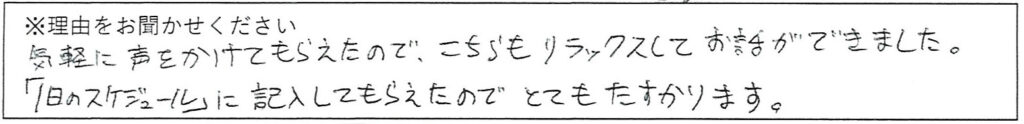 ※理由をお聞かせください
気軽に声をかけてもらえたので、こちらもリラックスしてお話ができました。
「1日のスケジュール」に記入してもらえたのでとてもたすかります。